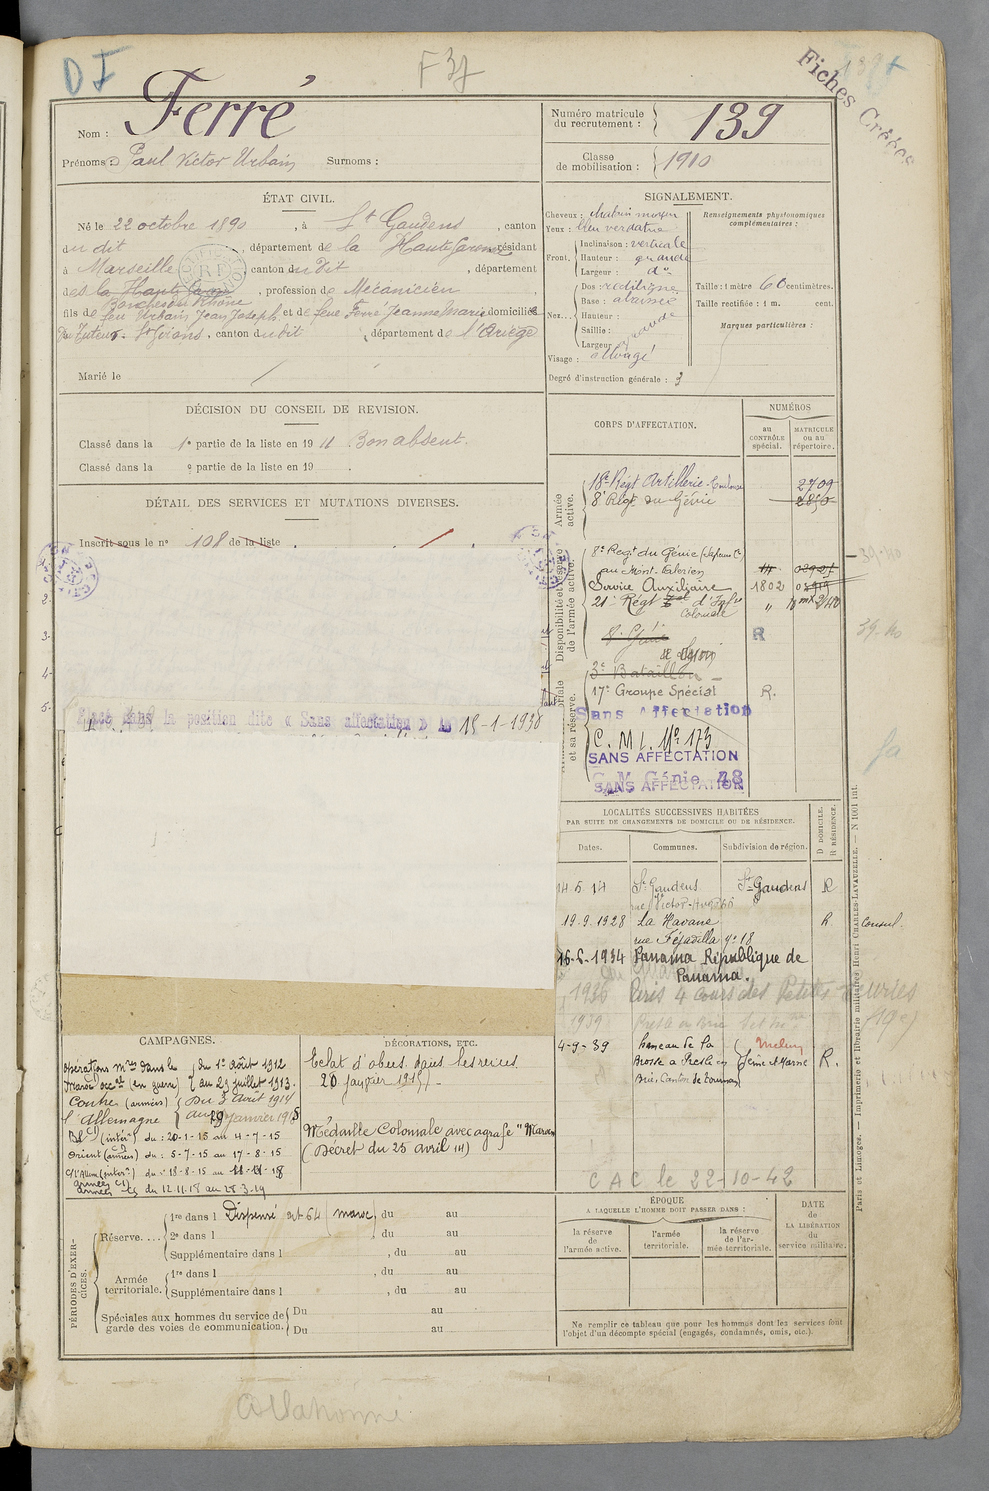 DF
F 37
Fiches Créées
Nom : Ferré
Prénoms : Paul Victor Urbain Surnoms :
Numéro matricule du recrutement : 139
Classe de mobilisation : 1910
ÉTAT CIVIL.
Né le 22 octobre 1890, à St Gaudens, canton
du dit, département de la Haute Garonne, résidant
à Marseille, canton du dit, département
des la Haute Garonne, profession de Mécanicien
Bouches du Rhône
fils de feu Urbain Jean Joseph et de feue Ferré Jeanne Marie domiciliés
Tuteur. St Girons, canton du dit, département de l'Ariège
Marié le
SIGNALEMENT.
Cheveux : châtain moyen
Yeux : bleu verdâtre
Front. Inclinaison : verticale
Hauteur : grande
Largeur : do
Nez... Dos : rectiligne
Base : abaissée
Hauteur :
Saillie :
Largeur :
Visage : allongé
Degré d'instruction générale : 3
Renseignements physionomiques complémentaires :
Taille : 1 mètre 60 centimètres.
Taille rectifiée : 1 m. cent.
Marques particulières :
DÉCISION DU CONSEIL DE REVISION.
Classé dans la 1e partie de la liste en 1911. Bon absent.
Classé dans la e partie de la liste en 19 .
DÉTAIL DES SERVICES ET MUTATIONS DIVERSES.
Inscrit sous le no 108 de la liste
Placé dans la position dite « Sans affectation » le 15-1-1938
CORPS D'AFFECTATION.
NUMÉROS
au CONTRÔLE spécial.
MATRICULE ou au répertoire.
Armée active.
18e Régt Artillerie Toulouse 2709
8e Régt du Génie
Disponibilité et réserve de l'armée active.
8e Régt du Génie
au Mont Valérien
Service Auxiliaire 1802
21e Régt d'Infie
Coloniale
8e Génie
R
et sa réserve.
3e Bataillon
17e Groupe Spécial R.
Sans Affectation
C. M. I. No 173
SANS AFFECTATION
C M Génie 48
SANS AFFECTATION
39.40
LOCALITÉS SUCCESSIVES HABITÉES
PAR SUITE DE CHANGEMENTS DE DOMICILE OU DE RÉSIDENCE.
Dates. Communes. Subdivision de région. D DOMICILE. R RÉSIDENCE.
14.5.14 St Gaudens St Gaudens R
rue Victor Hugo
19.9.1928 La Havane R. Consul.
rue Tejadilla no 18
16-6-1934 Panama République de
Panama.
1936 Paris 4 cours des Petites Écuries
1939 Presle en Brie
4-9-39 hameau de la Melun
Brosse a Presle en Seine et Marne R.
Brie. Canton de Tournan
C A C le 22-10-42
Paris et Limoges. — Imprimerie et librairie militaires Henri CHARLES-LAVAUZELLE. — N 1001 int.
CAMPAGNES.
Opérations mres dans le du 1er août 1912
Maroc occal (en guerre) au 29 juillet 1913.
Contre (armées) Du 3 août 1914
l'Allemagne au 19 janvier 1915
(intér) du : 20-1-15 au 4-7-15
Orient (armées) du : 5-7-15 au 17-8-15
C/l'Allem (intér) du : 18-8-15 au 11-11-18
armées du 12.11.18 au 28.3.19
DÉCORATIONS, ETC.
Eclat d'obus dans les reins
20 janvier 1915
Médaille Coloniale avec agrafe "Maroc"
(Décret du 25 avril 14)
PÉRIODES D'EXERCICES.
Réserve.... 1re dans l Dispensé art 64 (maroc) du au
2e dans l , du au
Supplémentaire dans l , du au
Armée territoriale. 1re dans l , du au
Supplémentaire dans l , du au
Spéciales aux hommes du service de garde des voies de communication. Du au
Du au
ÉPOQUE
A LAQUELLE L'HOMME DOIT PASSER DANS :
la réserve de l'armée active.
l'armée territoriale.
la réserve de l'armée territoriale.
DATE de LA LIBÉRATION du service militaire.
Ne remplir ce tableau que pour les hommes dont les services font
l'objet d'un décompte spécial (engagés, condamnés, omis, etc.).